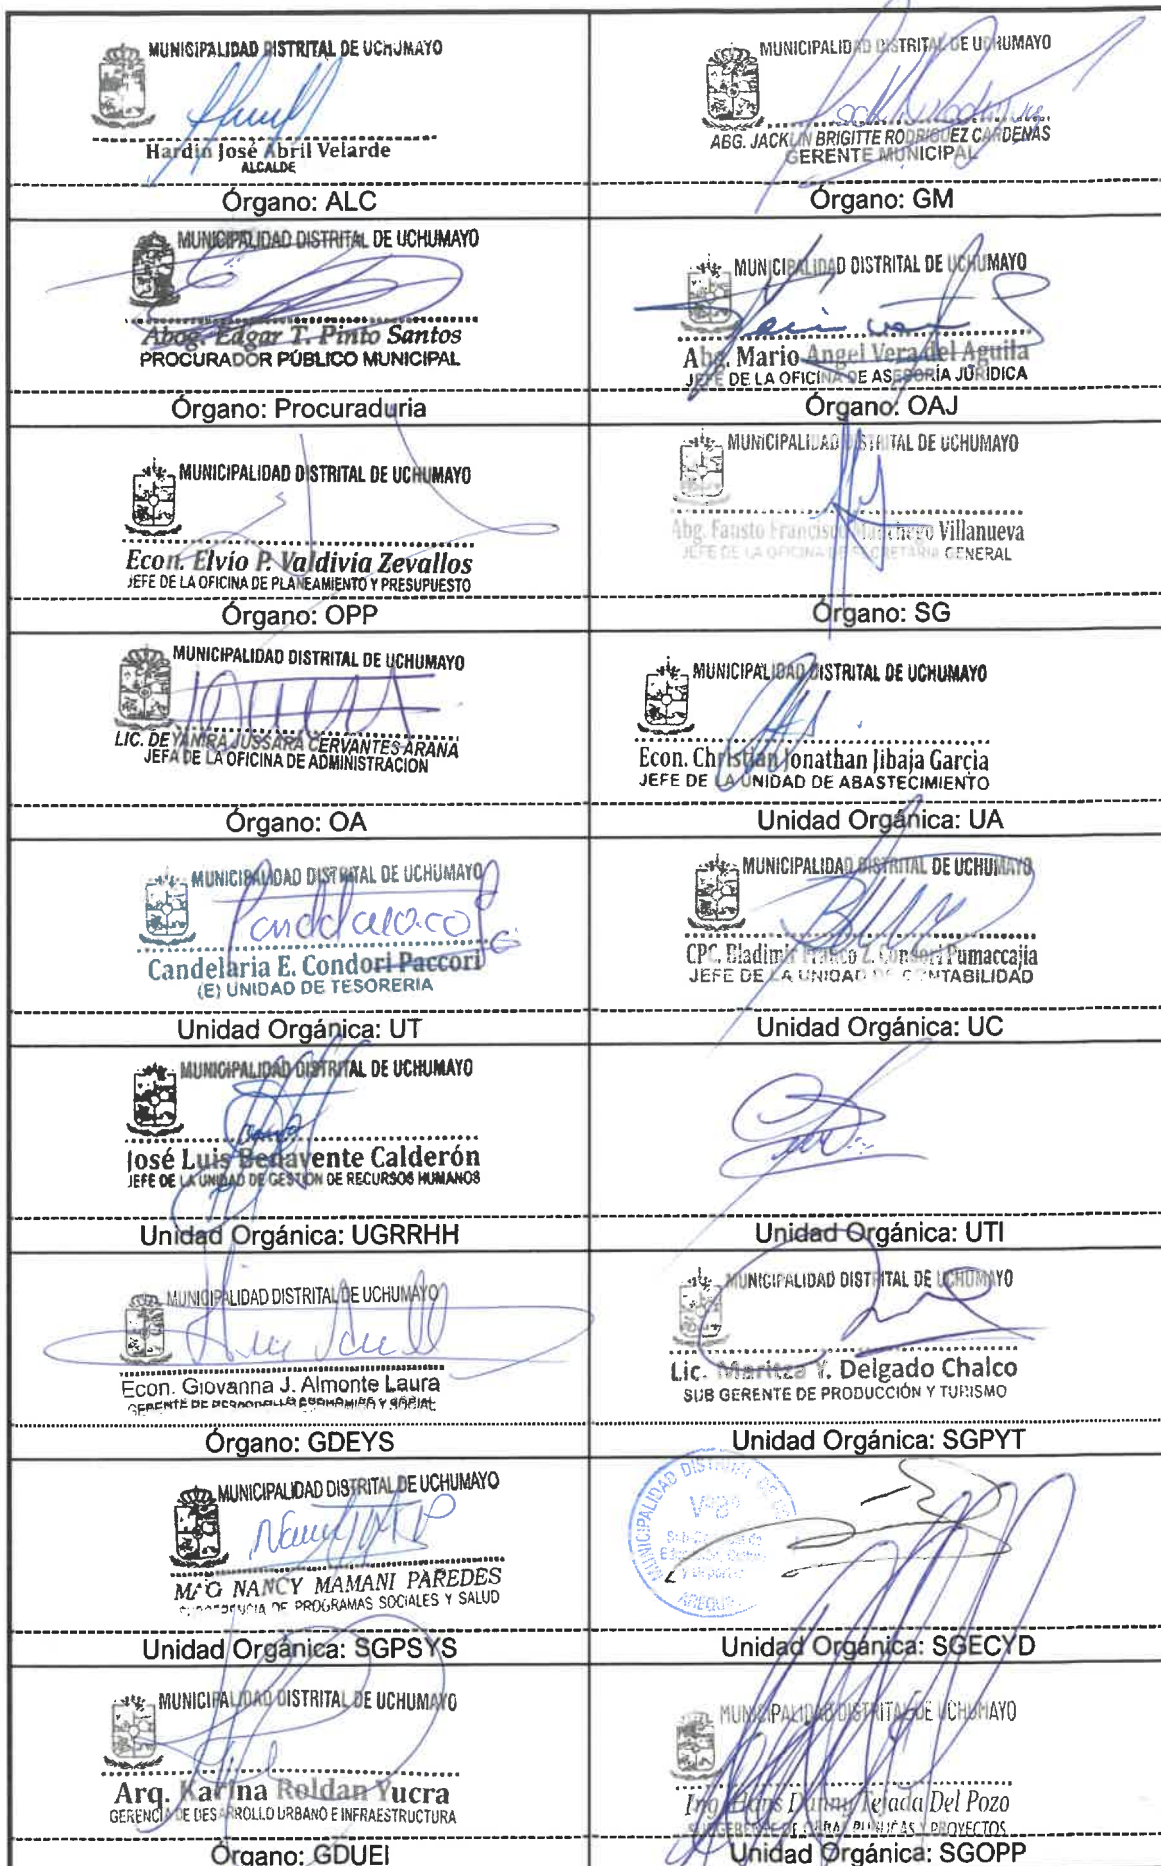 MUNICIPALIDAD DISTRITAL DE UCHUMAYO
Hardin José Abril Velarde
ALCALDE
Órgano: ALC
MUNICIPALIDAD DISTRITAL DE UCHUMAYO
ABG. JACKLIN BRIGITTE RODRIGUEZ CARDENAS
GERENTE MUNICIPAL
Órgano: GM
MUNICIPALIDAD DISTRITAL DE UCHUMAYO
Abog. Edgar T. Pinto Santos
PROCURADOR PÚBLICO MUNICIPAL
Órgano: Procuraduria
MUNICIPALIDAD DISTRITAL DE UCHUMAYO
Abg. Mario Angel Vera del Aguila
JEFE DE LA OFICINA DE ASESORÍA JURÍDICA
Órgano: OAJ
MUNICIPALIDAD DISTRITAL DE UCHUMAYO
Econ. Elvío P. Valdivia Zevallos
JEFE DE LA OFICINA DE PLANEAMIENTO Y PRESUPUESTO
Órgano: OPP
MUNICIPALIDAD DISTRITAL DE UCHUMAYO
Abg. Fausto Francisco Manchego Villanueva
JEFE DE LA OFICINA DE SECRETARIA GENERAL
Órgano: SG
MUNICIPALIDAD DISTRITAL DE UCHUMAYO
LIC. DEYANIRA JUSSARA CERVANTES ARANA
JEFA DE LA OFICINA DE ADMINISTRACION
Órgano: OA
MUNICIPALIDAD DISTRITAL DE UCHUMAYO
Econ. Christian Jonathan Jibaja Garcia
JEFE DE LA UNIDAD DE ABASTECIMIENTO
Unidad Orgánica: UA
MUNICIPALIDAD DISTRITAL DE UCHUMAYO
Candelaria E. Condori Paccori
(E) UNIDAD DE TESORERIA
Unidad Orgánica: UT
MUNICIPALIDAD DISTRITAL DE UCHUMAYO
CPC. Bladimir Franco Z. Condori Pumaccajia
JEFE DE LA UNIDAD DE CONTABILIDAD
Unidad Orgánica: UC
MUNICIPALIDAD DISTRITAL DE UCHUMAYO
José Luis Benavente Calderón
JEFE DE LA UNIDAD DE GESTIÓN DE RECURSOS HUMANOS
Unidad Orgánica: UGRRHH
Unidad Orgánica: UTI
MUNICIPALIDAD DISTRITAL DE UCHUMAYO
Econ. Giovanna J. Almonte Laura
GERENTE DE DESARROLLO ECONOMICO Y SOCIAL
Órgano: GDEYS
MUNICIPALIDAD DISTRITAL DE UCHUMAYO
Lic. Maritza Y. Delgado Chalco
SUB GERENTE DE PRODUCCIÓN Y TURISMO
Unidad Orgánica: SGPYT
MUNICIPALIDAD DISTRITAL DE UCHUMAYO
MAG NANCY MAMANI PAREDES
SUBGERENCIA DE PROGRAMAS SOCIALES Y SALUD
Unidad Orgánica: SGPSYS
MUNICIPALIDAD DISTRITAL DE
V°B°
Unidad Orgánica: SGECYD
MUNICIPALIDAD DISTRITAL DE UCHUMAYO
Arq. Karina Roldan Yucra
GERENCIA DE DESARROLLO URBANO E INFRAESTRUCTURA
Órgano: GDUEI
MUNICIPALIDAD DISTRITAL DE UCHUMAYO
Ing. Hans Danny Tejada Del Pozo
SUBGERENTE DE OBRAS PUBLICAS Y PROYECTOS
Unidad Orgánica: SGOPP